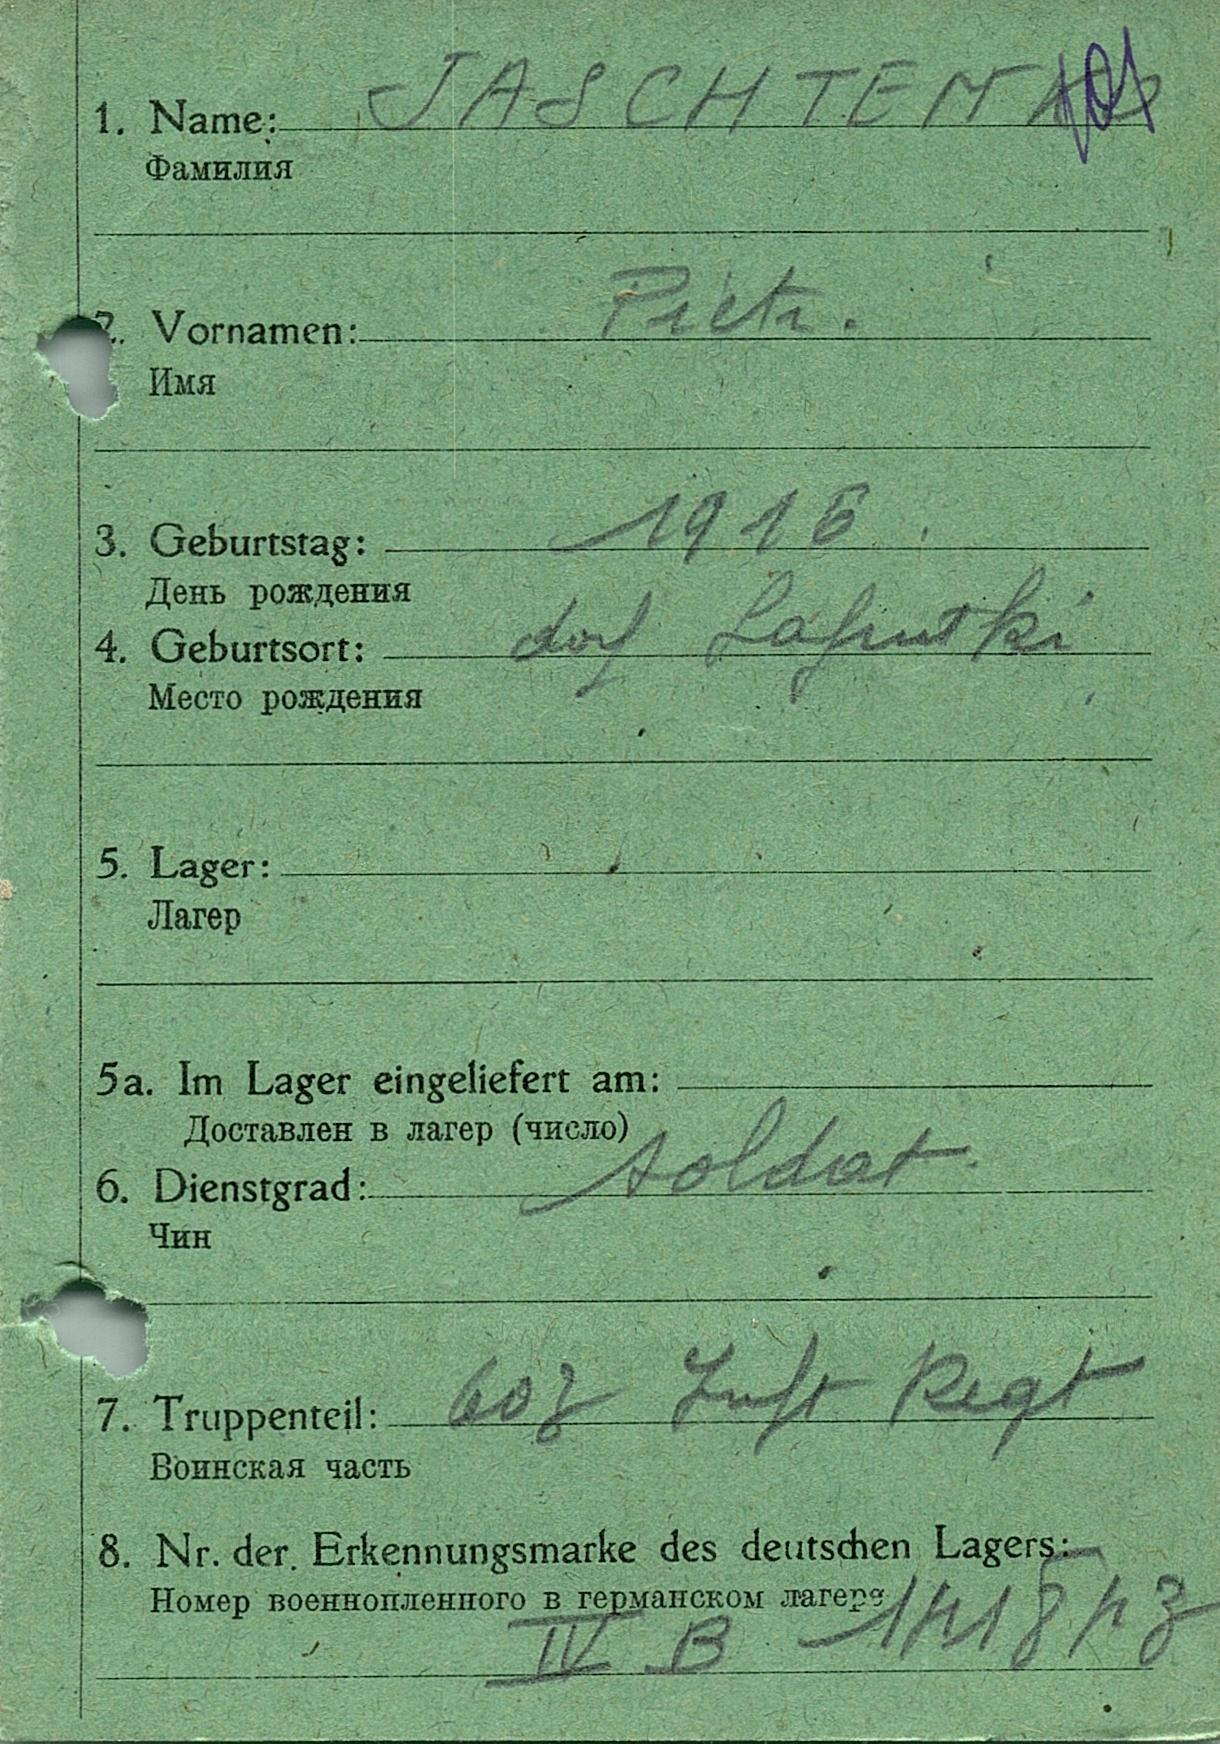 1. Name: JASCHTEM
Фамилия
2. Vornamen: Pietr.
Имя
3. Geburtstag: 1916
День рождения
4. Geburtsort: dorf
Место рождения
5. Lager:
Лагер
5a. Im Lager eingeliefert am:
Доставлен в лагер (число)
6. Dienstgrad: soldat.
Чин
7. Truppenteil: Luft Regt
Воинская часть
8. Nr. der. Erkennungsmarke des deutschen Lagers:
Номер военнопленного в германском лагере
IV B